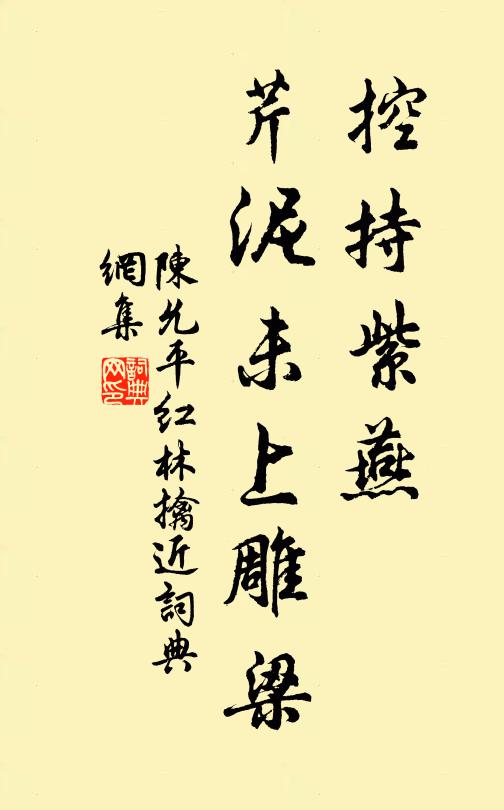 控持紫燕
芹泥未上雕梁
陳允平红林擒近詞典
網集
詞典
网印